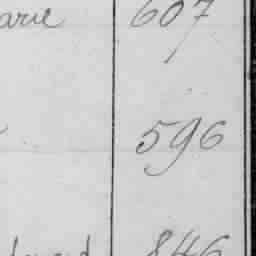 arie 607
596
846